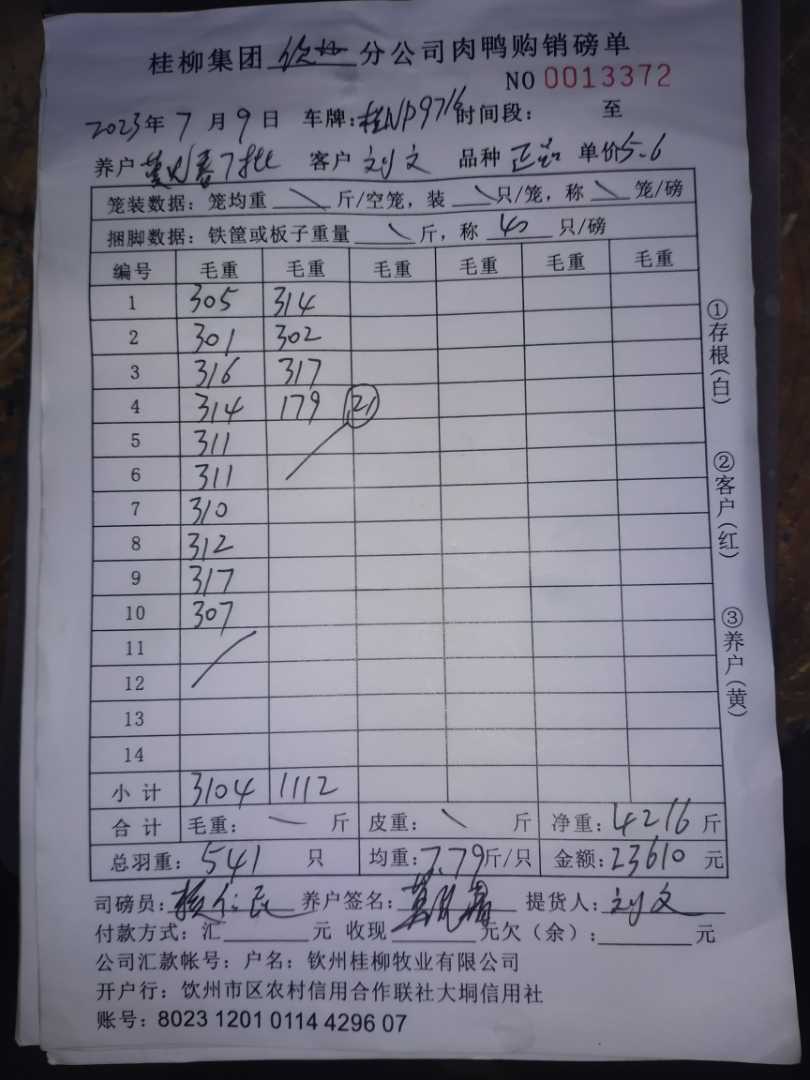 桂柳集团 钦州 分公司肉鸭购销磅单
NO 0013372
2023年 7 月 9 日 车牌:桂NP9716 时间段: 至
养户 春7批 客户 刘文 品种 正品 单价5.6
笼装数据: 笼均重 \ 斤/空笼, 装 \ 只/笼, 称 \ 笼/磅
捆脚数据: 铁筐或板子重量 \ 斤, 称 40 只/磅
编号 毛重 毛重 毛重 毛重 毛重 毛重
1 305 314
2 301 302
3 316 317
4 314 179 21
5 311
6 311
7 310
8 312
9 317
10 307
11
12
13
14
小 计 3104 1112
合 计 毛重: — 斤 皮重: \ 斤 净重: 4216 斤
总羽重: 541 只 均重: 7.79 斤/只 金额: 23610 元
司磅员: 养户签名: 提货人: 刘文
付款方式: 汇 元 收现 元欠(余): 元
公司汇款帐号: 户名: 钦州桂柳牧业有限公司
开户行: 钦州市区农村信用合作联社大垌信用社
账号: 8023 1201 0114 4296 07
①存根(白)
②客户(红)
③养户(黄)